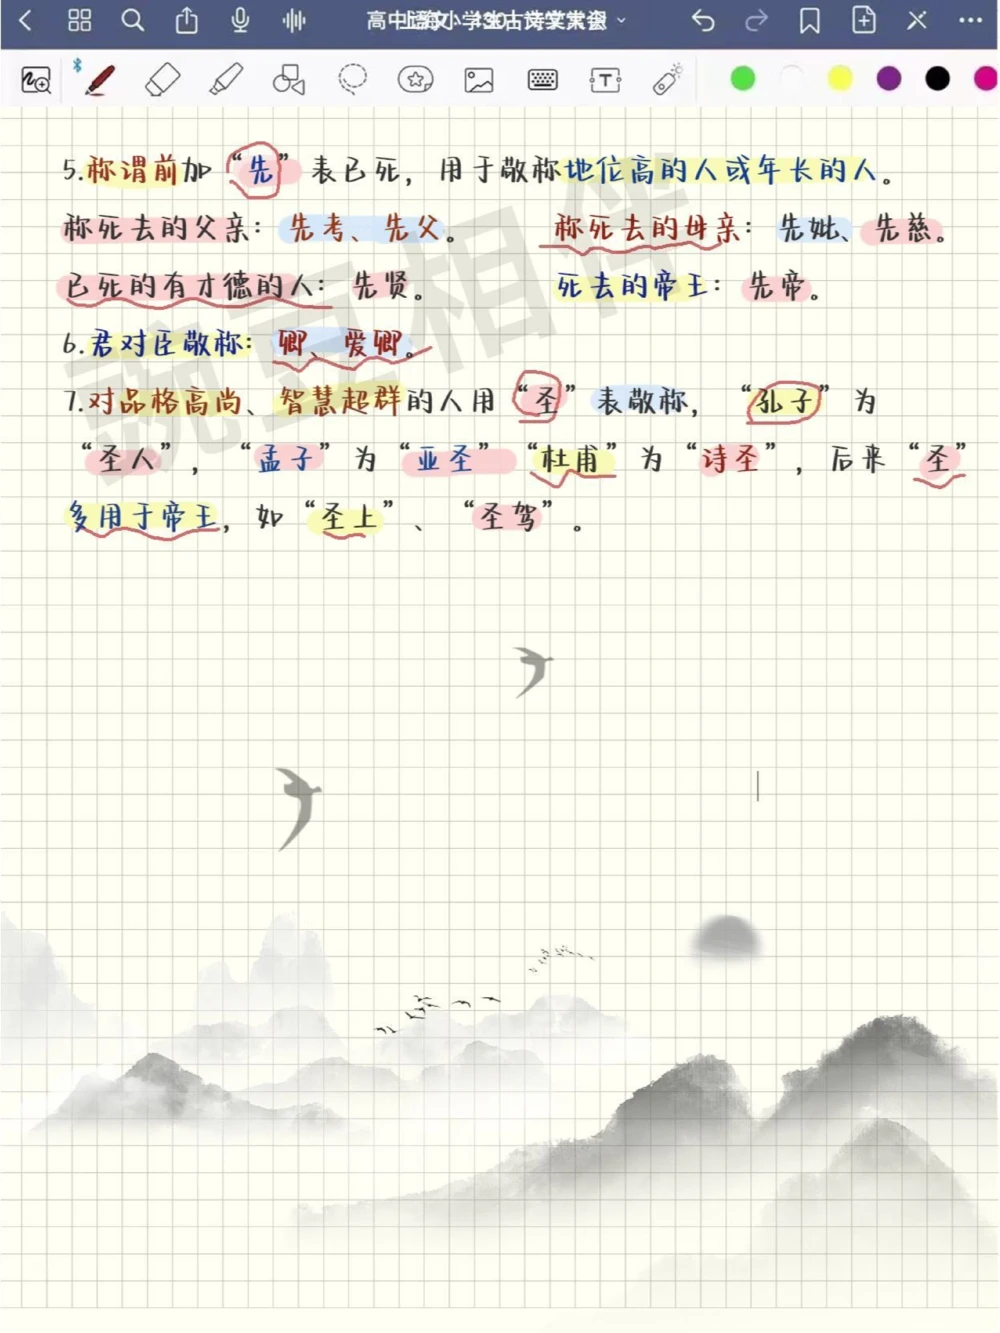 5.称谓前加“先”表已死，用于敬称地位高的人或年长的人。
称死去的父亲：先考、先父。 称死去的母亲：先妣、先慈。
已死的有才德的人：先贤。 死去的帝王：先帝。
6.君对臣敬称：卿、爱卿。
7.对品格高尚、智慧超群的人用“圣”表敬称，“孔子”为
“圣人”，“孟子”为“亚圣”“杜甫”为“诗圣”，后来“圣”
多用于帝王，如“圣上”、“圣驾”。